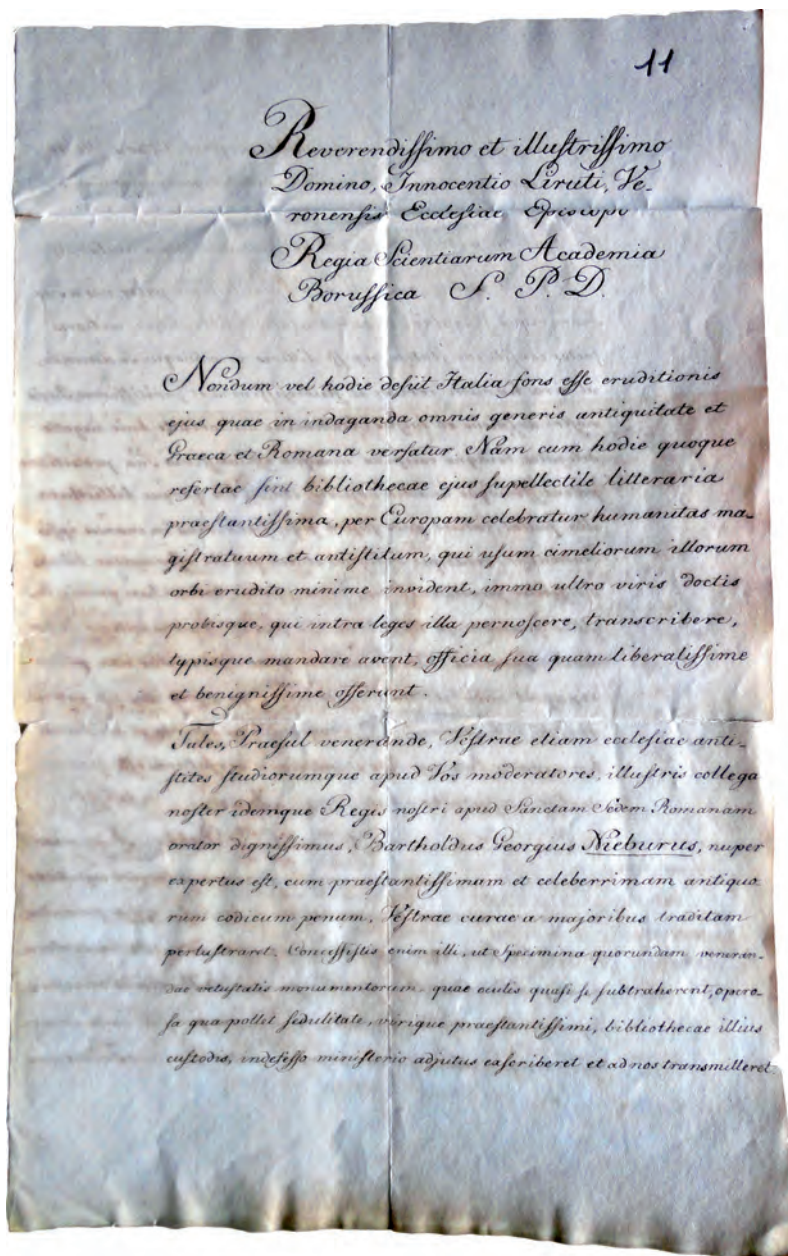 11
Reverendissimo et illustrissimo
Domino, Innocentio Liruti, Ve-
ronensis Ecclesiae Episcopo
Regia Scientiarum Academia
Borussica S. P. D.
Nondum vel hodie desiit Italia fons esse eruditionis
ejus quae in indaganda omnis generis antiquitate et
Graeca et Romana versatur. Nam cum hodie quoque
refertae sint bibliothecae ejus supellectile litteraria
praestantissima, per Europam celebratur humanitas ma-
gistratuum et antistitum, qui usum cimeliorum illorum
orbi erudito minime invident, immo ultro viris doctis
probisque, qui intra leges illa pernoscere, transcribere,
typisque mandare avent, officia sua quam liberalissime
et benignissime offerunt.
Tales, Praesul venerande, Vestrae etiam ecclesiae anti-
stites studiorumque apud Vos moderatores, illustris collega
noster idemque Regis nostri apud Sanctam Sedem Romanam
orator dignissimus, Bartholdus Georgius Nieburus, nuper
expertus est, cum praestantissimam et celeberrimam antiquo
rum codicum penum, Vestrae curae a majoribus traditam
perlustraret. Concessistis enim illi, ut Specimina quorundam veneran-
dae vetustatis monumentorum, quae oculis quasi se subtraherent, opero-
sa qua pollet sedulitate, virique praestantissimi, bibliothecae illius
custodis, indefesso ministerio adjutus exscriberet et ad nos transmitteret.